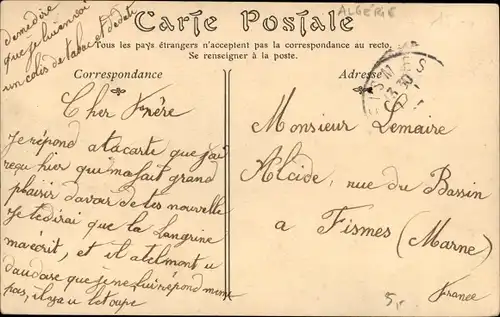 demedire
que je lui envoi
un colis de tabac et de date
ALGÉRIE
Carte Postale
Tous les pays étrangers n'acceptent pas la correspondance au recto.
Se renseigner à la poste.
Correspondance
Adresse
FISMES
Cher Frère
Je répond a ta carte que j'ai
reçu hier qui m'a fait grand
plaisir d'avoir de tes nouvelle
Je te dirai que la Langrine
m'a écrit, et il a telmont u
d'audase que je ne lui répond mème
pas, il y a u le toupe
Monsieur Lemaire
Alcide, rue du Bassin
a Fismes (Marne)
France